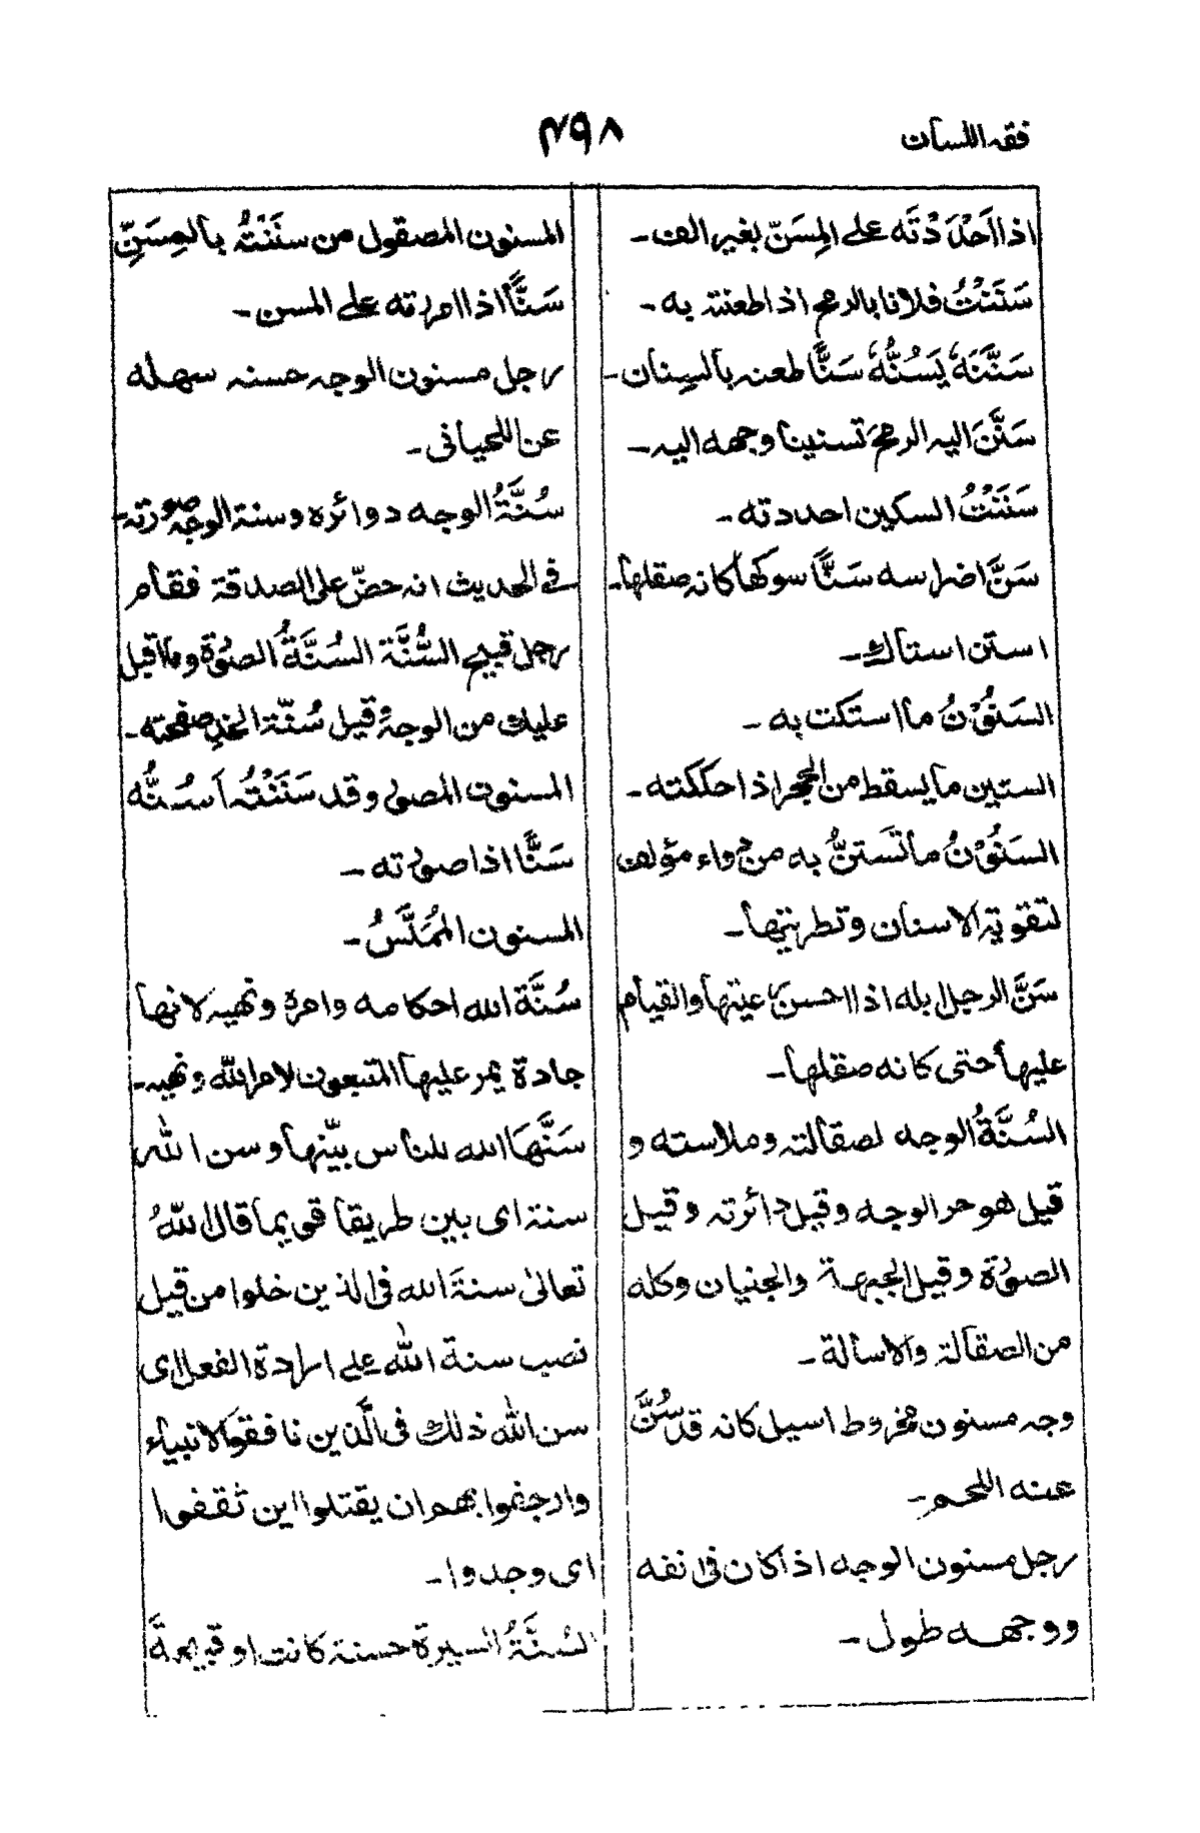 فقه اللسان
۴۹۸
اذا اَحْدَدْتَه على المِسَنّ بغير الف۔
سَنَنْتُ فلانا بالرمح اذا طعنته به۔
سَنَّنَهٗ يَسُنُّهٗ سَنًّا طعنه بالسِنان۔
سَنَّنَ اليه الرمحَ تسنينا وجهه اليه۔
سَنَنْتُ السكين احددته۔
سَنَّ اضراسه سَنًّا سوكها كانه صقلها۔
استن استاك۔
السَنُوْنُ ما استكت به۔
السنين ما يسقط من الحجر اذا حككته۔
السَنُوْنُ ما تَستنُّ به من دواء مؤلف
لتقوية الاسنان وتطريتها۔
سَنَّ الرجل ابله اذا احسن رعيتها والقيام
عليها حتى كانه صقلها۔
السُنَّةُ الوجه لصقالته وملاسته و
قيل هو حر الوجه وقيل دائرته وقيل
الصورة وقيل الجبهة والجنيان وكله
من الصقالة والاسالة۔
وجه مسنون مخروط اسيل كانه قد سُنَّ
عنه اللحم۔
رجل مسنون الوجه اذا كان فى انفه
ووجهه طول۔
المسنون المصقول من سنَنْتُه بالمِسَنّ
سَنًّا اذا امررته على المسن۔
رجل مسنون الوجه حسنه سهله
عن اللحيانى۔
سُنَّةُ الوجه دوائره وسنة الوجه صورته۔
فى الحديث انه حضّ على الصدقة فقام
رجل قبيح السُّنَّة السُنَّةُ الصورة وما اقبل
عليك من الوجه وقيل سُنّة الخدِ صفحته۔
المسنون المصور وقد سَنَنْتُه اَسُنُّه
سَنًّا اذا صورته۔
المسنون المُمَلَّسُ۔
سُنَّة الله احكامه وامره ونهيه لانها
جادة يمر عليها المتبعون لامر الله ونهيه۔
سَنَّهَا الله للناس بيّنها وسن الله
سنة اى بين طريقا قويما قال اللهُ
تعالى سنةَ الله فى الذين خلوا من قبل
نصب سنة الله على ارادة الفعل اى
سن الله ذلك فى الَّذين نافقوا الانبياء
وارجفوا بهم ان يقتلوا اين ثقفوا
اى وجدوا۔
السُنَّةُ السيرة حسنة كانت او قبيحةً